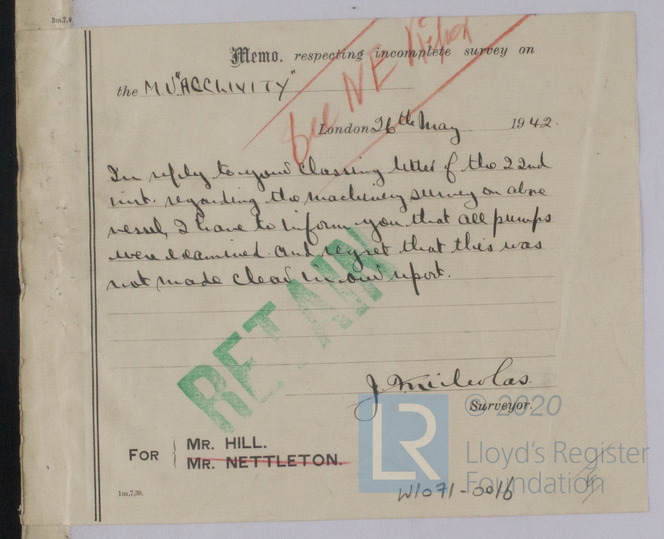 1m,7,4
Memo. respecting incomplete survey on
the M V "ACCLIVITY"
See NE
London 26th May 1942.
In reply to your classing letter of the 22nd
inst. regarding the machinery survey on above
vessel, I have to inform you that all pumps
were examined and regret that this was
not made clear in our report.
RETAIN
J. McNicholas
Surveyor.
© 2020
LR
Lloyd's Register
Foundation
FOR MR. HILL.
MR. NETTLETON.
1m,7,39.
W1071-0016